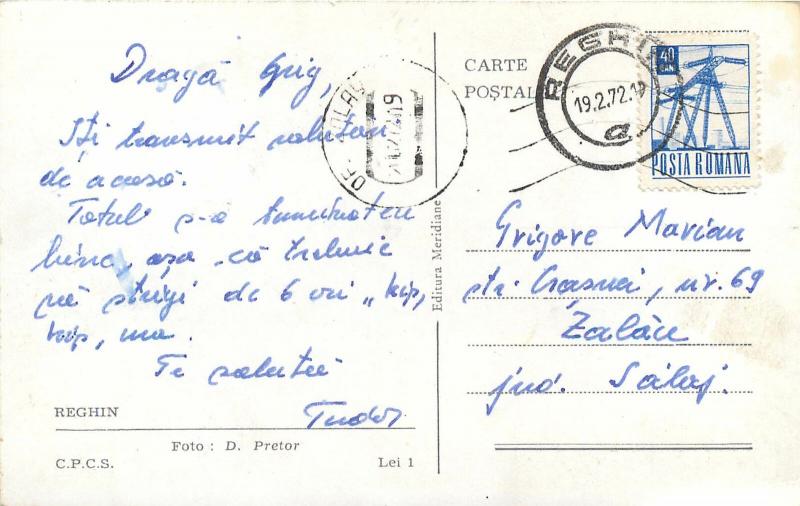 Dragă Grig,
Îți transmit salutari
de acasă.
Totul s-a terminat cu
bine, așa că trebuie
să strigi de 6 ori „hip,
hip, ura.
Te salută
Tudor
REGHIN
Foto : D. Pretor
C.P.C.S.
Lei 1
Editura Meridiane
CARTE
POȘTALĂ
REGHIN
19.2.72.
a
OF.
40
POSTA ROMANA
Grigore Marian
str. Crasnei, nr. 69
Zalău
jud. Sălaj.